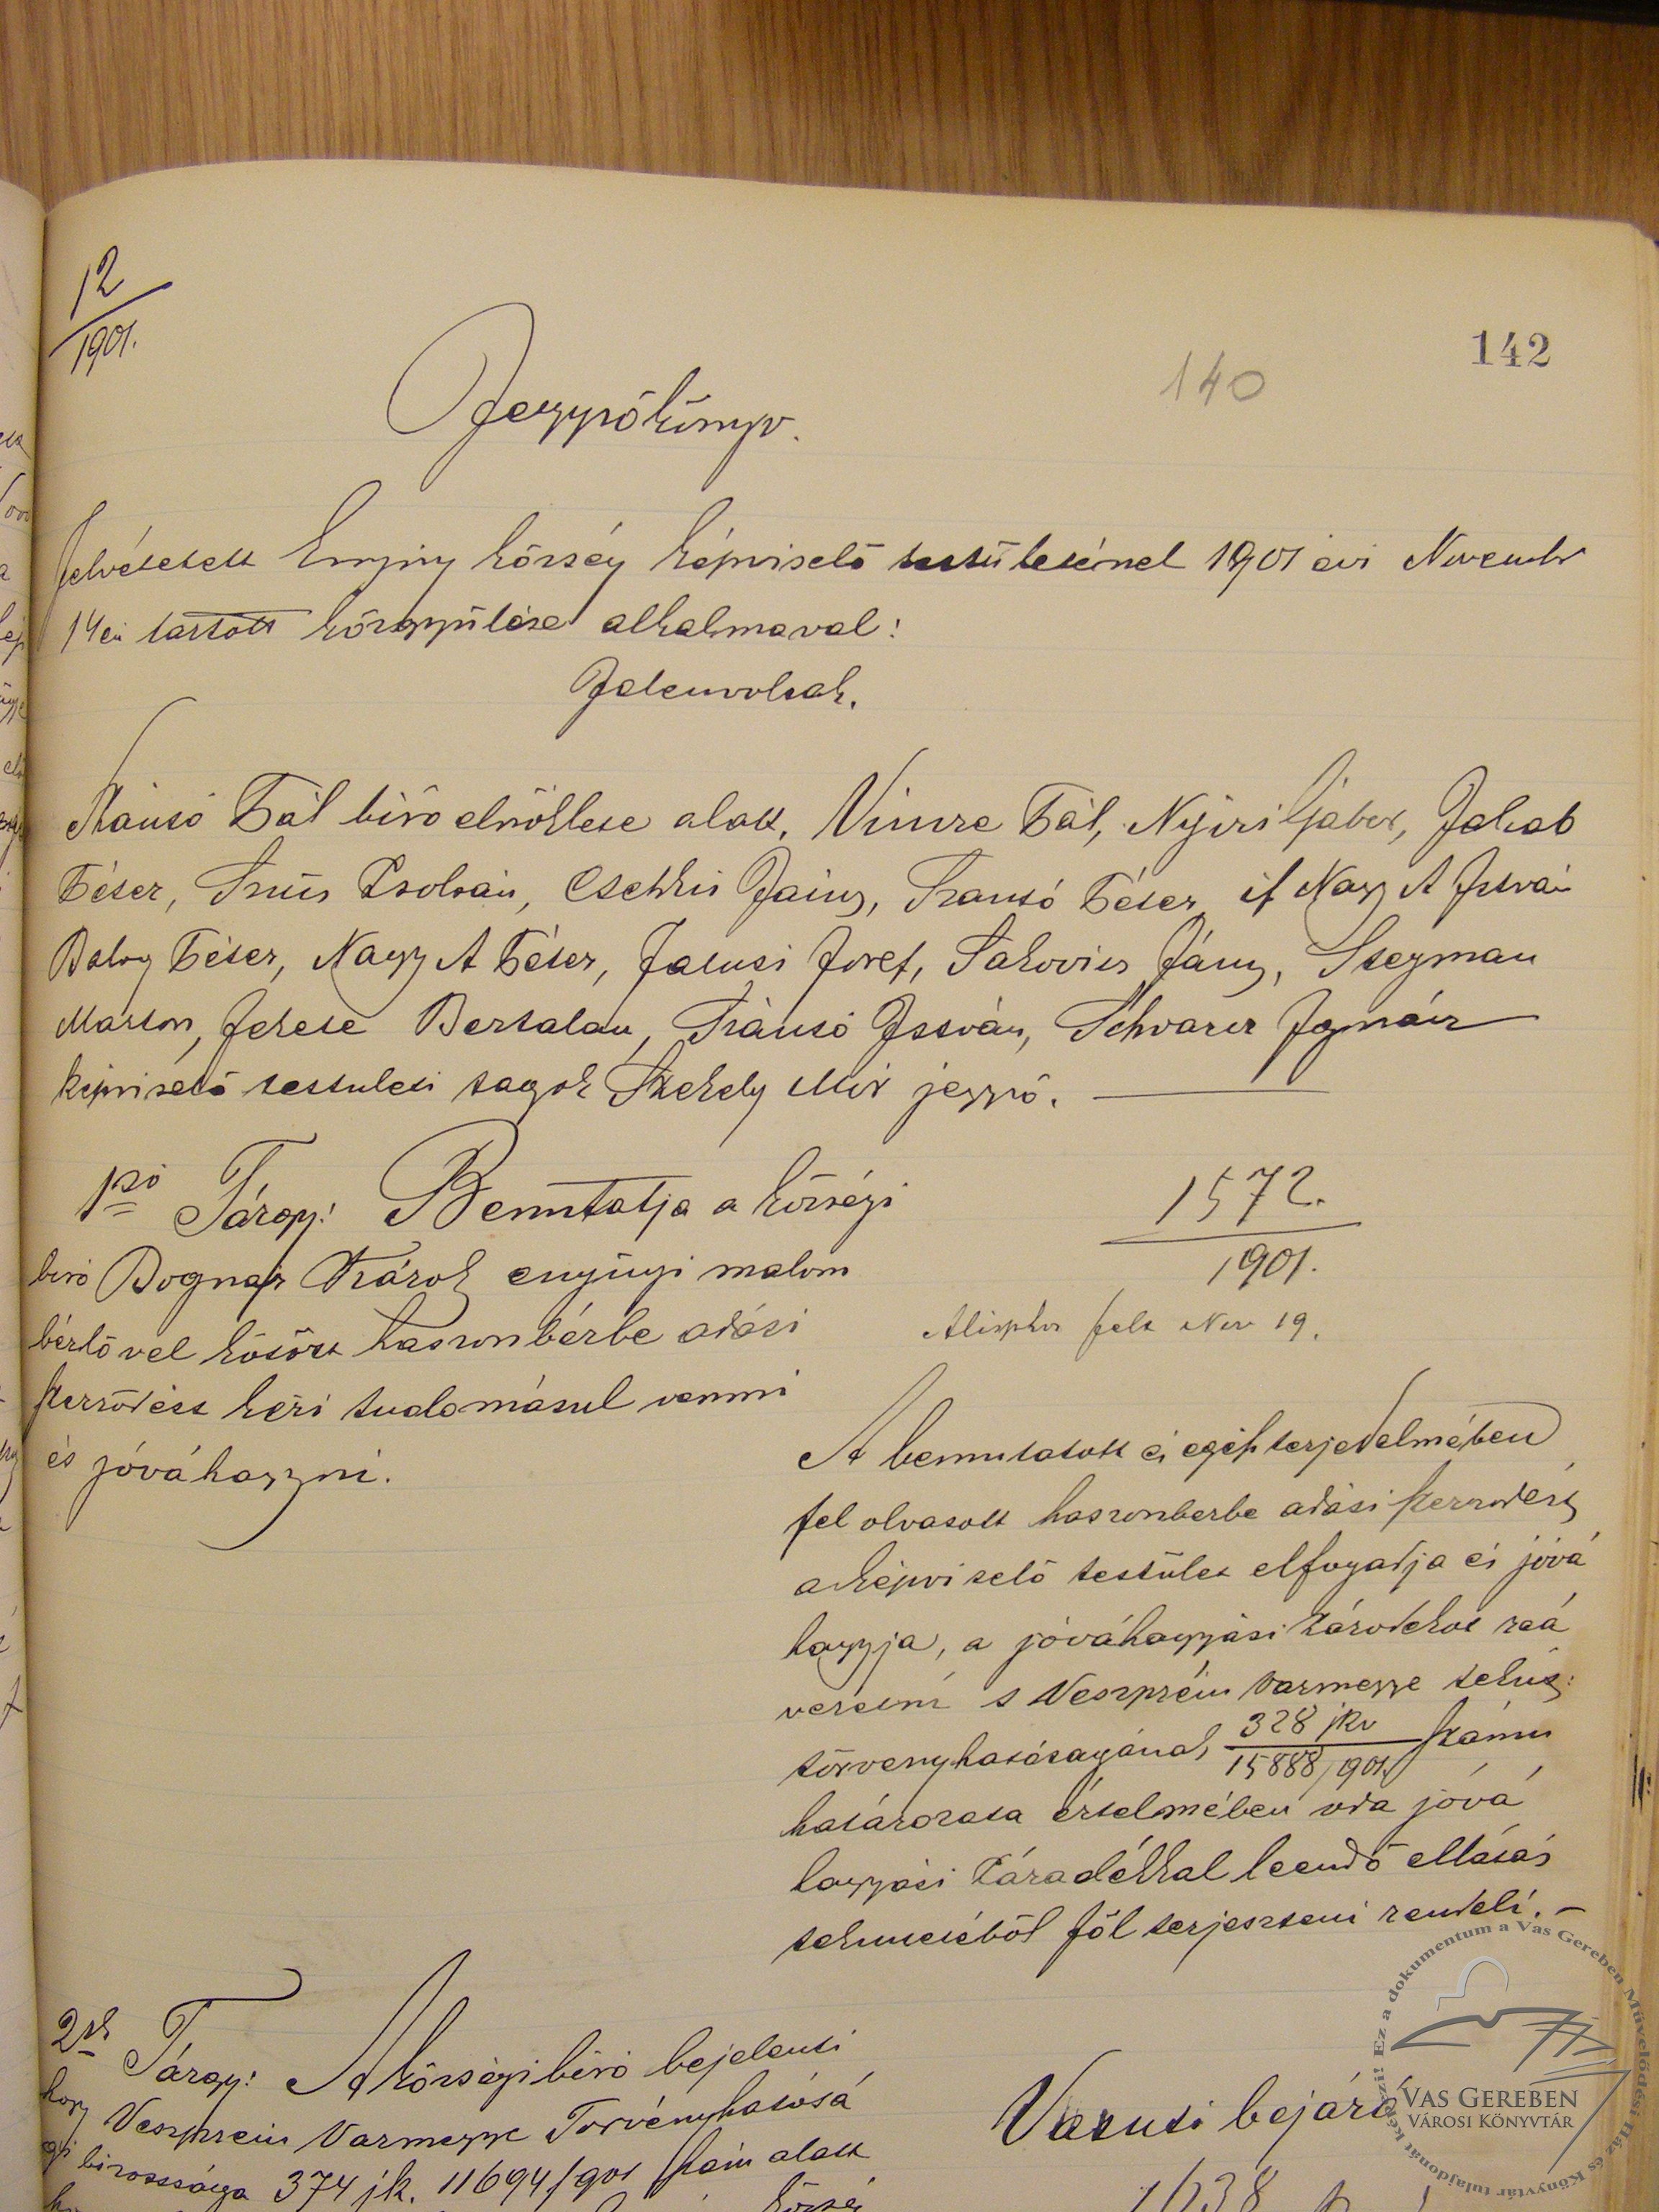 12
1901.
142
140
Jegyzőkönyv.
Felvétetett Enying község képviselő testületének 1901 évi November
14én tartott közgyűlése alkalmával:
Jelenvoltak.
Pál biró elnöklete alatt, Vincze Pál, Nyiri Gábor, Jakab
Péter, Szűts Zsoltán, János, Szantó Péter, if Nagy A István
Balog Péter, Nagy A Péter, József, János, Stegman
Marton, Fekete Bertalan, Szántó István, Schvarcz Ignácz
képviselő testületi tagok Székely Mór jegyző.
1ső Tárgy: Bemutatja a községi
biró Bognár Károly enyingi malom
bérlővel kötött haszonbérbe adási
szerződést kéri tudomásul venni
és jóváhagyni.
1572.
1901.
Nov 19.
A bemutatott és egész terjedelmében
fel olvasott haszonberbe adási szerződést
a képviselő testület elfogadja és jóvá
hagyja, a jóváhagyási záradékot reá
vezetni s Veszprém vármegye tekint:
törvenyhatóságának 328 jkv
15888/901. számu
határozata értelmében oda jóvá
hagyási záradékkal leendő ellátás
tekintetéből föl terjeszteni rendeli. –
2ik Tárgy: A községi biró bejelenti
hogy Veszprém Vármegye Törvényhatósá
gi bizottsága 374 jk. 11694/901 szám alatt
község
Vasuti bejáró
1638
Ez a dokumentum a Vas Gereben Művelődési Ház és Könyvtár tulajdonát képezi!
VAS GEREBEN
VÁROSI KÖNYVTÁR